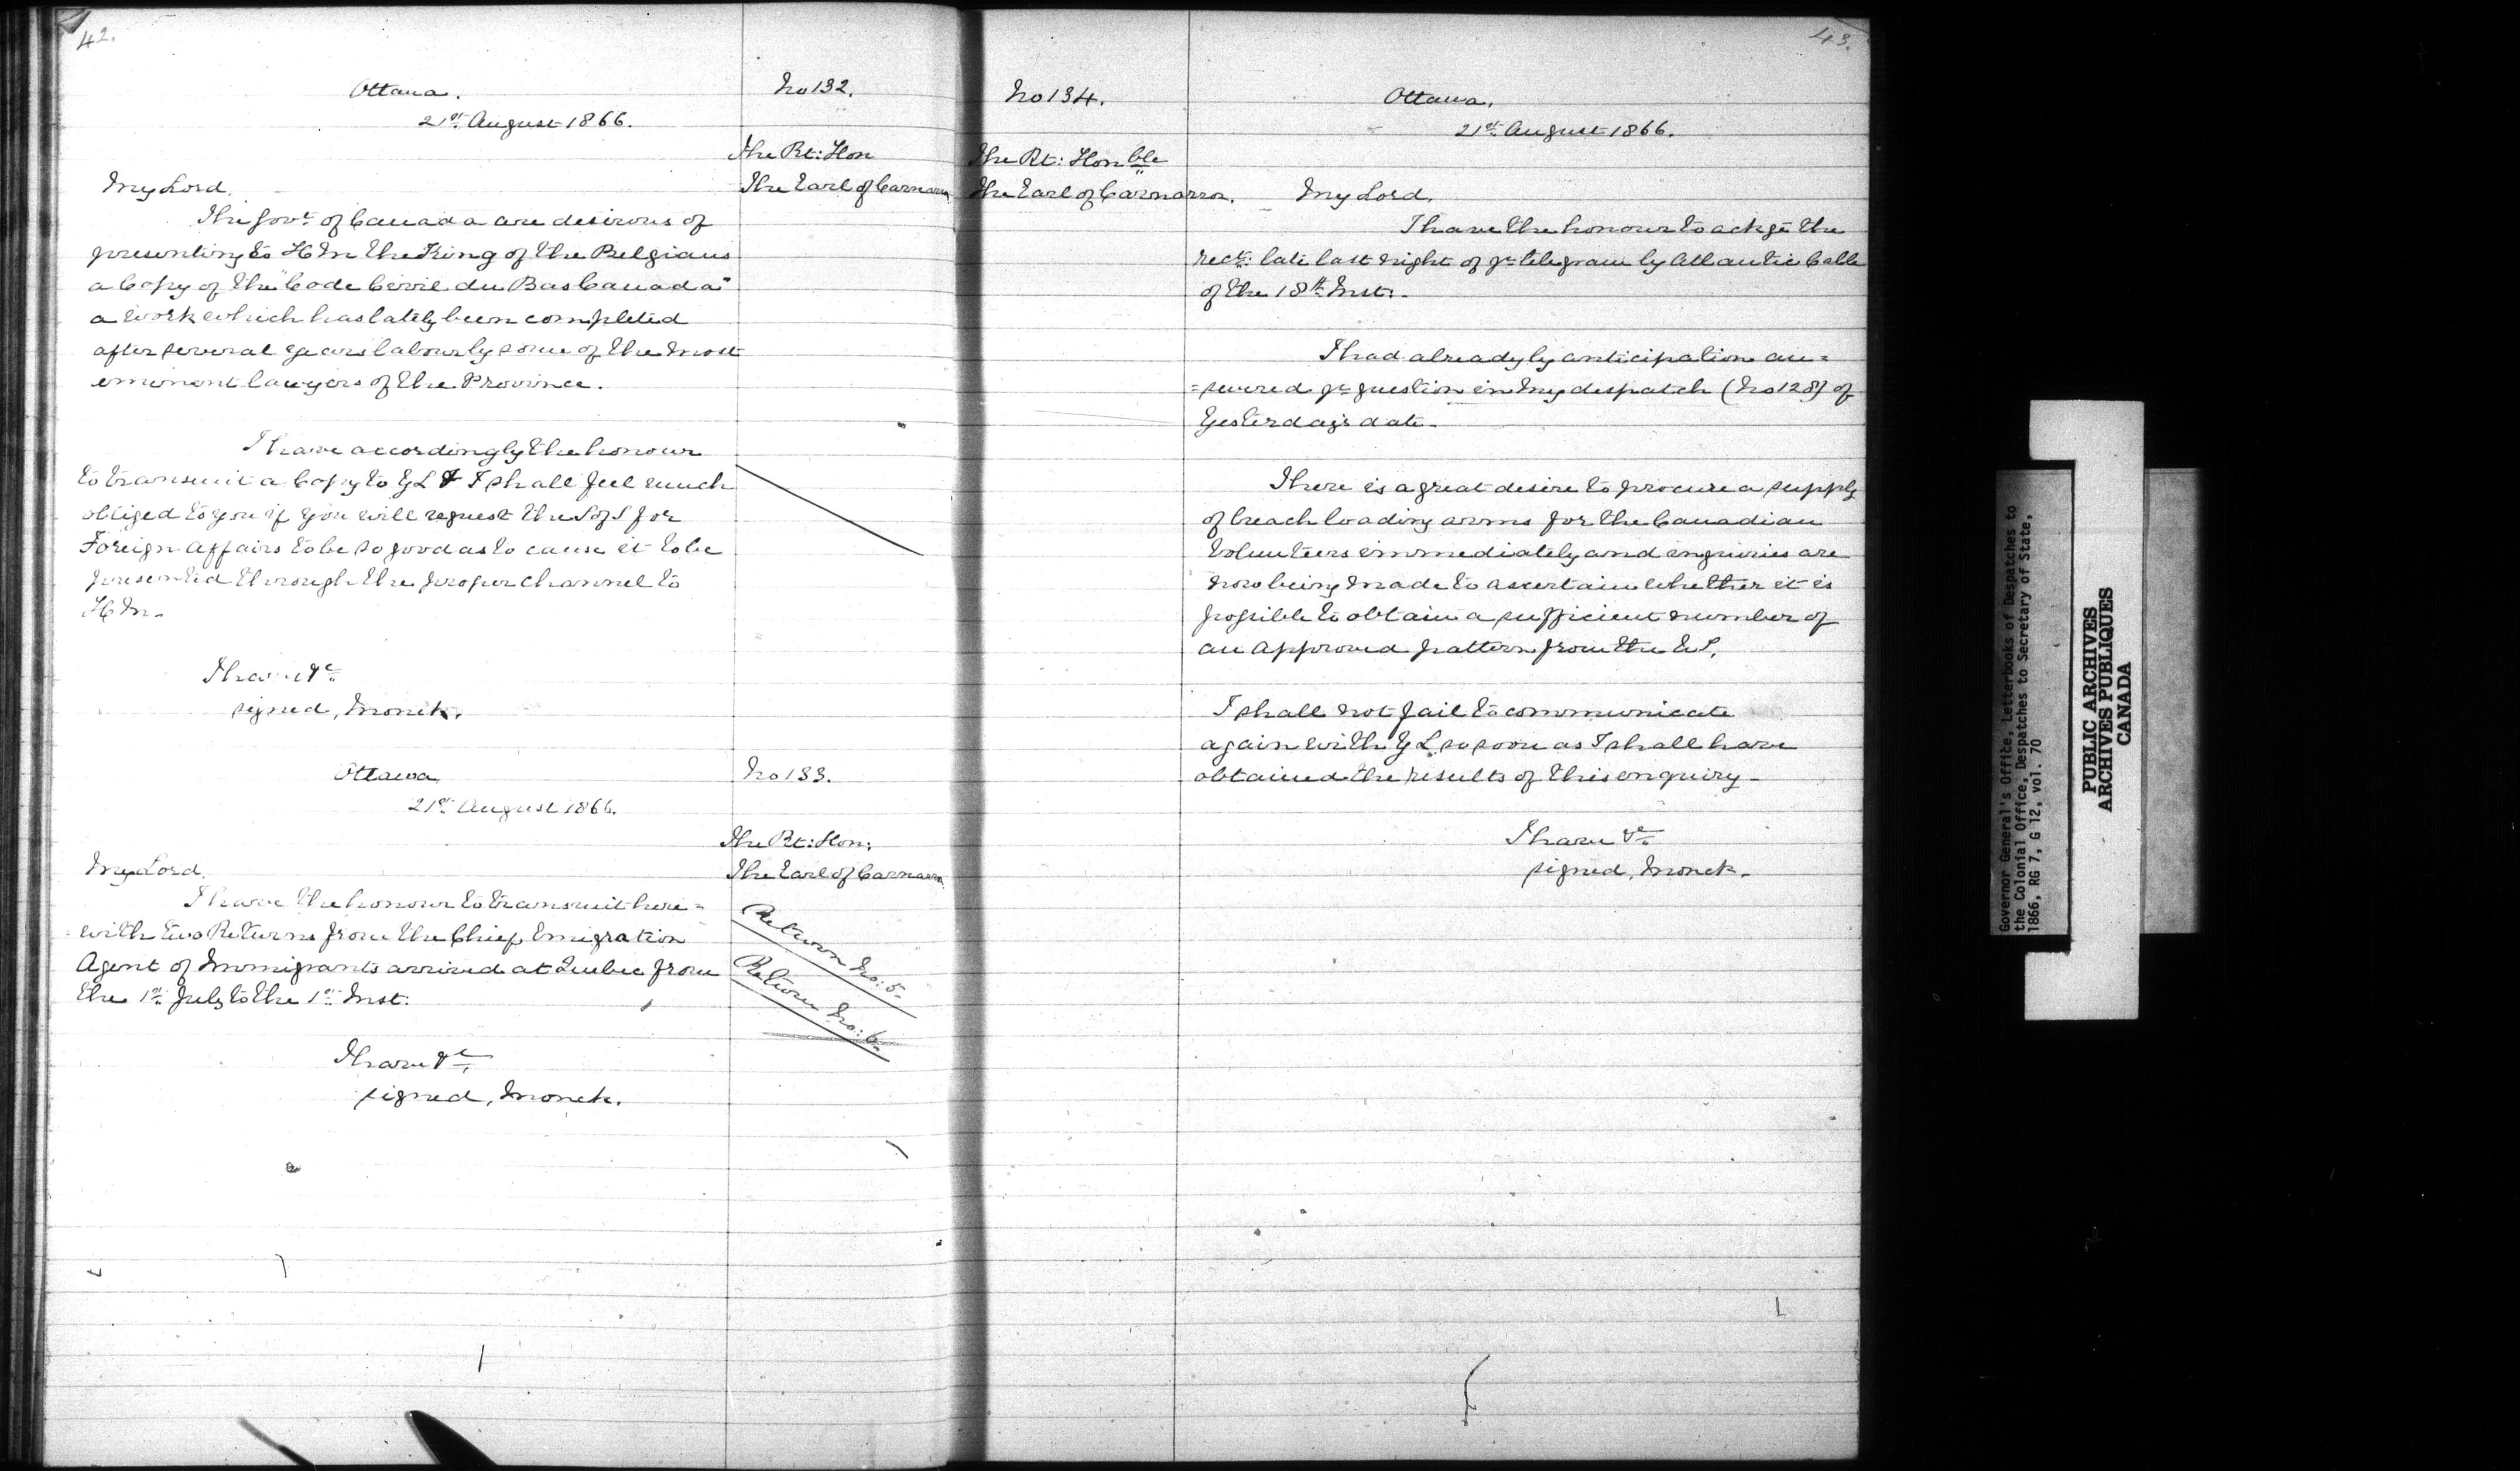 42.
Ottawa.
21st August 1866.
No 132.
The Rt: Hon
The Earl of Carnarvon
My Lord.
The Govt of Canada are desirous of
presenting to H M the King of the Belgians
a Copy of the "Code Civil du Bas Canada"
a work which has lately been completed
after several years labour by some of the most
eminent lawyers of the Province.
I have accordingly the honour
to transmit a Copy to Y L & I shall feel much
obliged to you if you will request the S of S for
Foreign Affairs to be so good as to cause it to be
presented through the proper channel to
H M.
I have &c
signed, Monck.
Ottawa,
21st August 1866.
No 133.
The Rt: Hon:
The Earl of Carnarvon
My Lord.
I have the honour to transmit here=
with two Returns from the Chief Emigration
Agent of Immigrants arrived at Quebec from
the 1st July to the 1st Inst:
Return No: 5.
Return No: 6.
I have &c
signed, Monck.
43.
No 134.
Ottawa.
21st August 1866.
The Rt: Honble
The Earl of Carnarvon.
My Lord.
I have the honour to ackge the
rect: late last night of yr telegram by Atlantic Cable
of the 18th Inst:
I had already by anticipation an=
=swered yr question in my despatch (No 128) of
Yesterday's date.
There is a great desire to procure a supply
of breach loading arms for the Canadian
Volunteers immediately and inquiries are
now being made to ascertain whether it is
possible to obtain a sufficient number of
an approved pattern from the U S.
I shall not fail to communicate
again with Y L so soon as I shall have
obtained the results of this enquiry.
I have &c
signed, Monck.
Governor General's Office, Letterbooks of Despatches to
the Colonial Office, Despatches to Secretary of State,
1866, RG 7, G 12, vol. 70
PUBLIC ARCHIVES
ARCHIVES PUBLIQUES
CANADA